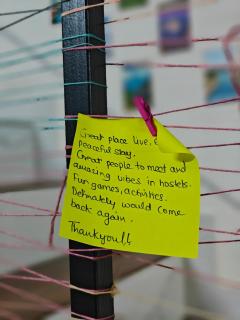 Great place live, &
peaceful stay.
Great people to meet and
amazing vibes in hostels.
Fun games, activities.
Definately would come
back again.
Thankyou!!